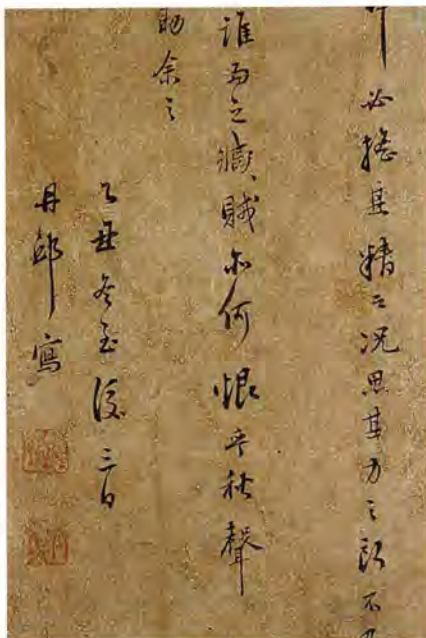 必搖其精而況思其力之所不
誰為之戕賊亦何恨乎秋聲
助余之
乙丑冬至後三日
丹邱寫